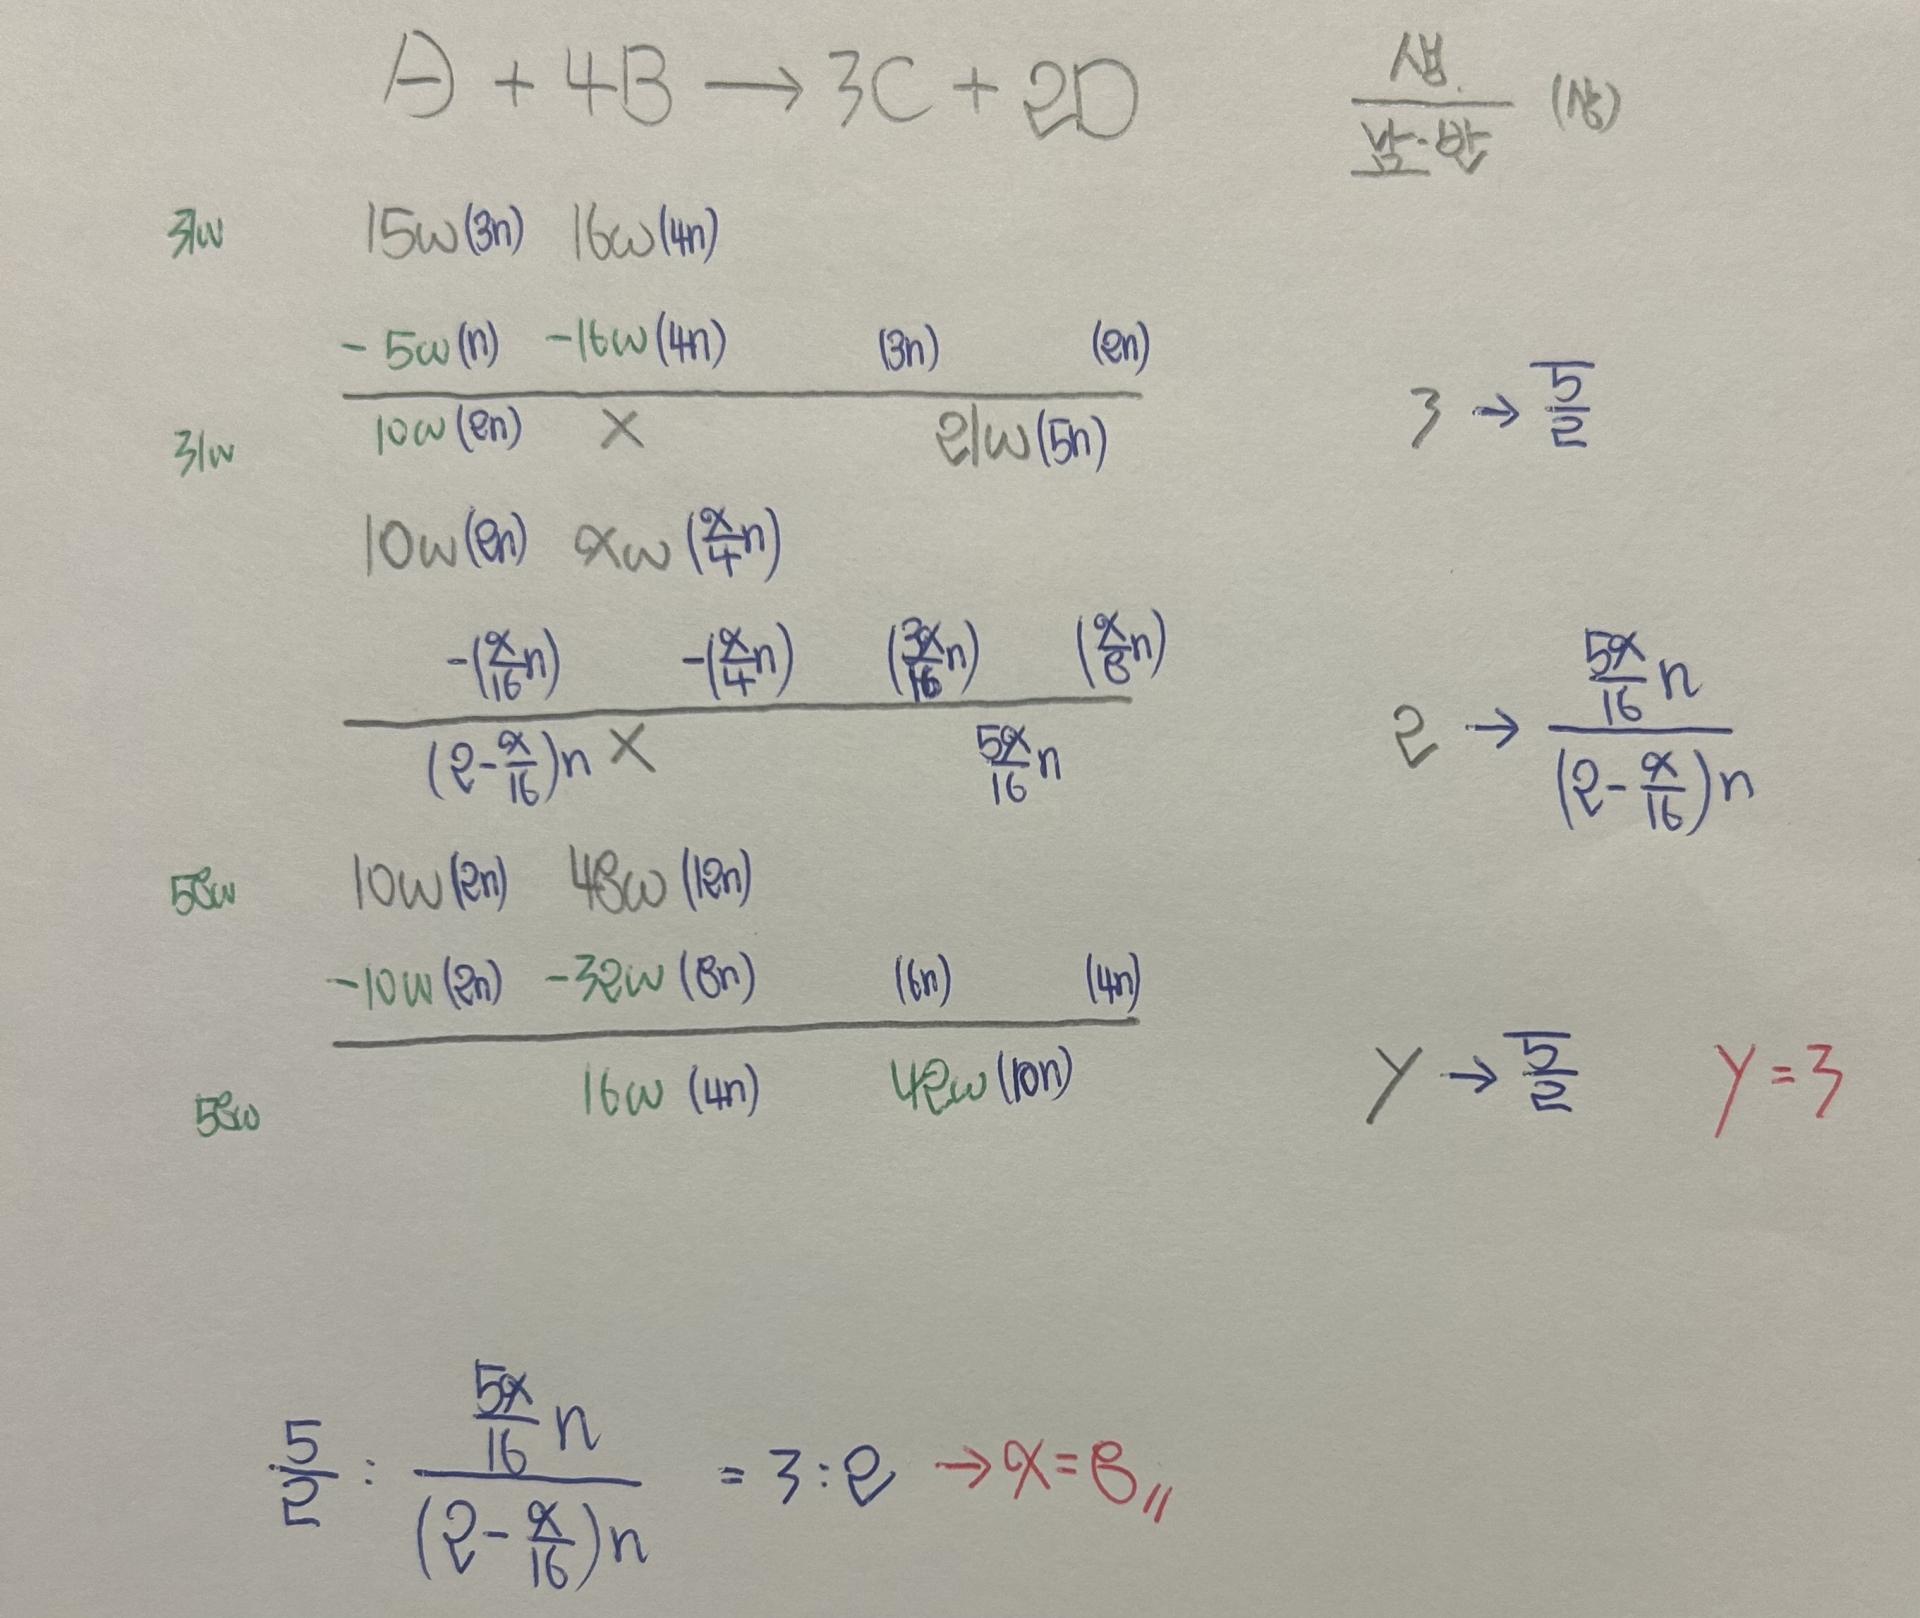 A + 4B → 3C + 2D 생. / 남.반 (상)
31w 15w(3n) 16w(4n)
-5w(n) -16w(4n) (3n) (2n)
31w 10w(2n) X 21w(5n) 3 → 5/2
10w(2n) xw(x/4 n)
-(x/16 n) -(x/4 n) (3x/16 n) (x/8 n)
(2-x/16)n X 5x/16 n 2 → 5x/16 n / (2-x/16)n
58w 10w(2n) 48w(12n)
-10w(2n) -32w(8n) (6n) (4n)
58w 16w(4n) 42w(10n) y → 5/2 y=3
5/2 : 5x/16 n / (2-x/16)n = 3:2 → x=8〃